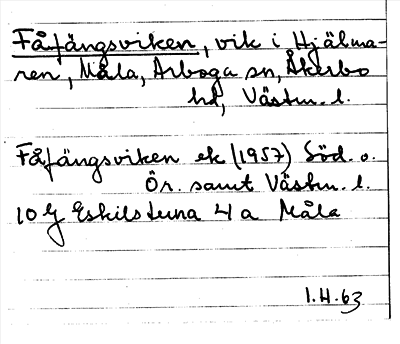 Fåfängsviken, vik i Hjälma-
ren, Måla, Arboga sn, Åkerbo
hd, Västm. l.
Fåfängsviken ek (1957) Söd. o.
Ör. samt Västm. l.
10 G Eskilstuna 4 a Måla
1.4.63